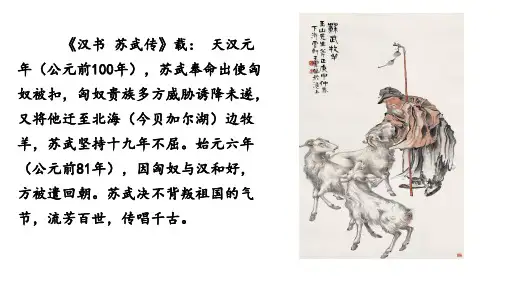 《汉书 苏武传》载： 天汉元
年（公元前100年），苏武奉命出使匈
奴被扣，匈奴贵族多方威胁诱降未遂，
又将他迁至北海（今贝加尔湖）边牧
羊，苏武坚持十九年不屈。始元六年
（公元前81年），因匈奴与汉和好，
方被遣回朝。苏武决不背叛祖国的气
节，流芳百世，传唱千古。
蘇武牧羊